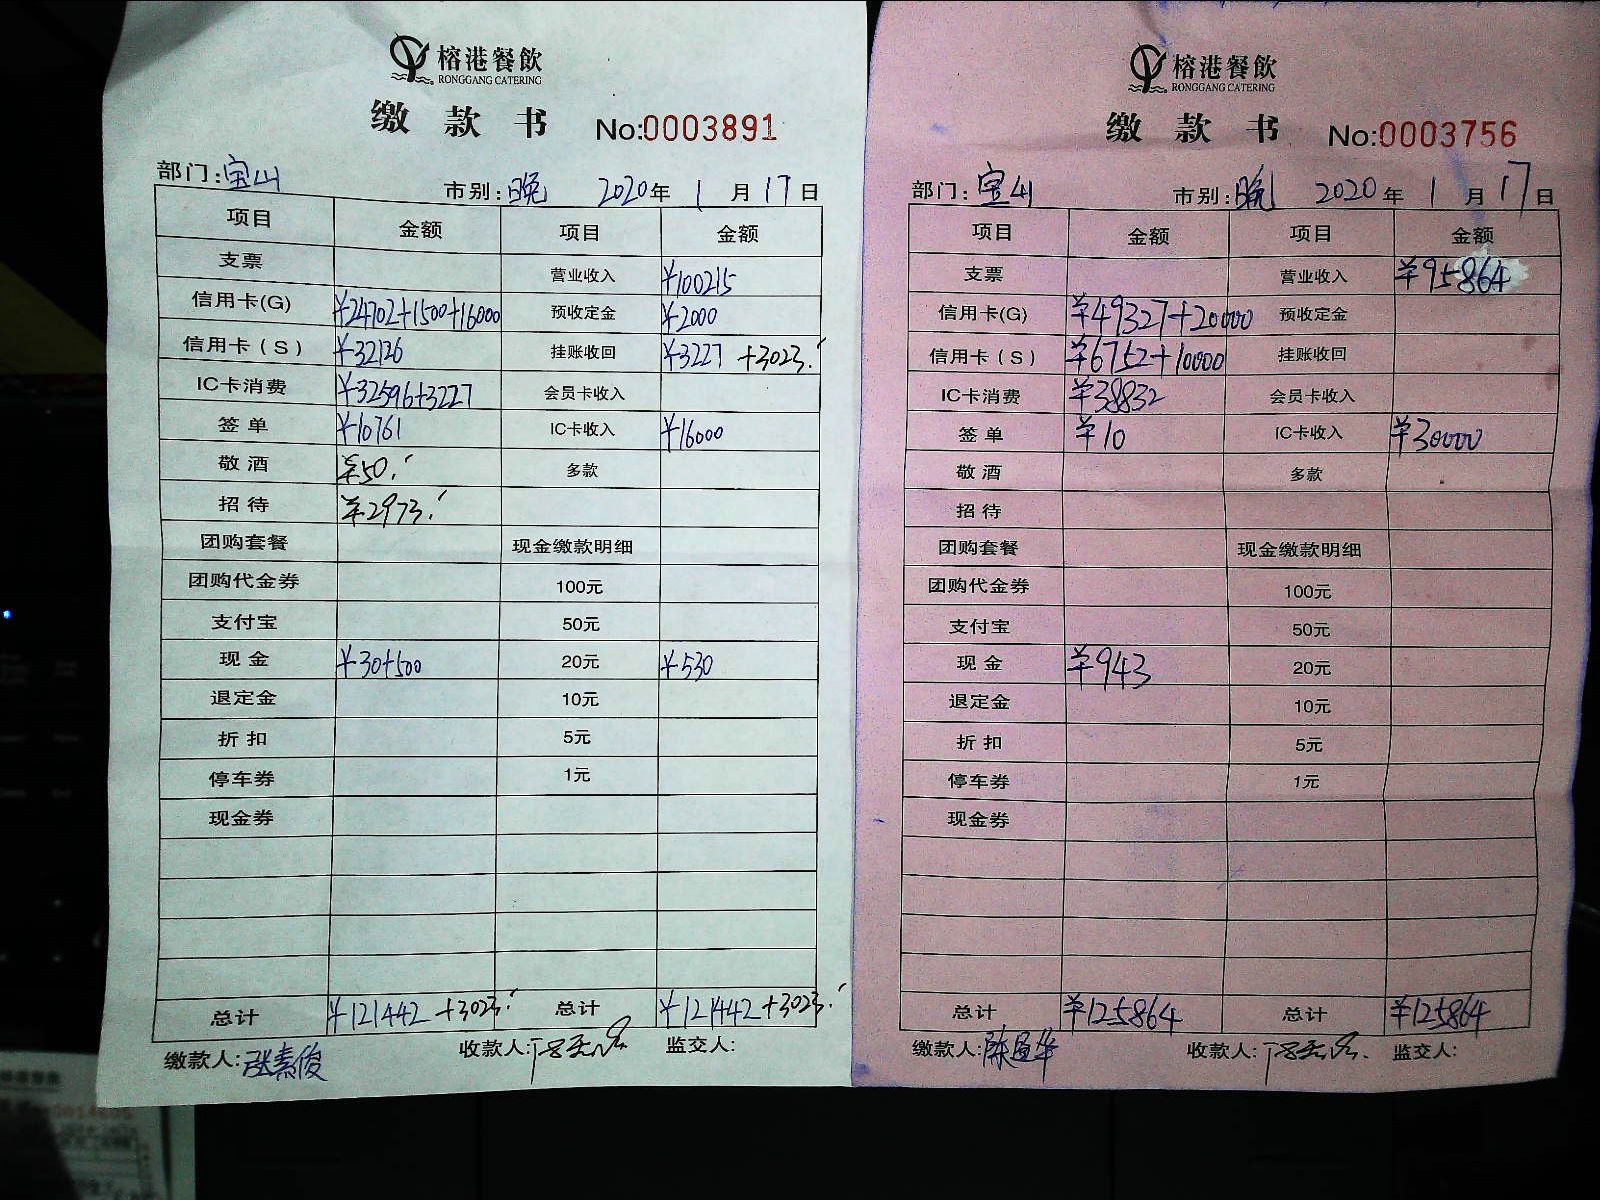 榕港餐飲
RONGGANG CATERING
缴款书 No:0003891
部门:宝山 市别:晚 2020年1月17日
项目 金额 项目 金额
支票 营业收入 ¥100215
信用卡(G) ¥24702+1500+16000 预收定金 ¥2000
信用卡(S) ¥32126 挂账收回 ¥3227 +3023.
IC卡消费 ¥32596+3227 会员卡收入
签单 ¥10761 IC卡收入 ¥16000
敬酒 ¥50. 多款
招待 ¥2973.
团购套餐 现金缴款明细
团购代金券 100元
支付宝 50元
现金 ¥30+500 20元 ¥530
退定金 10元
折扣 5元
停车券 1元
现金券
总计 ¥121442 +3023. 总计 ¥121442 +3023.
缴款人:张素俊 收款人: 监交人:
榕港餐飲
RONGGANG CATERING
缴款书 No:0003756
部门:宝山 市别:晚 2020年1月17日
项目 金额 项目 金额
支票 营业收入 ¥95864
信用卡(G) ¥49327+20000 预收定金
信用卡(S) ¥6752+10000 挂账收回
IC卡消费 ¥38832 会员卡收入
签单 ¥10 IC卡收入 ¥30000
敬酒 多款
招待
团购套餐 现金缴款明细
团购代金券 100元
支付宝 50元
现金 ¥943 20元
退定金 10元
折扣 5元
停车券 1元
现金券
总计 ¥125864 总计 ¥125864
缴款人: 收款人: 监交人: